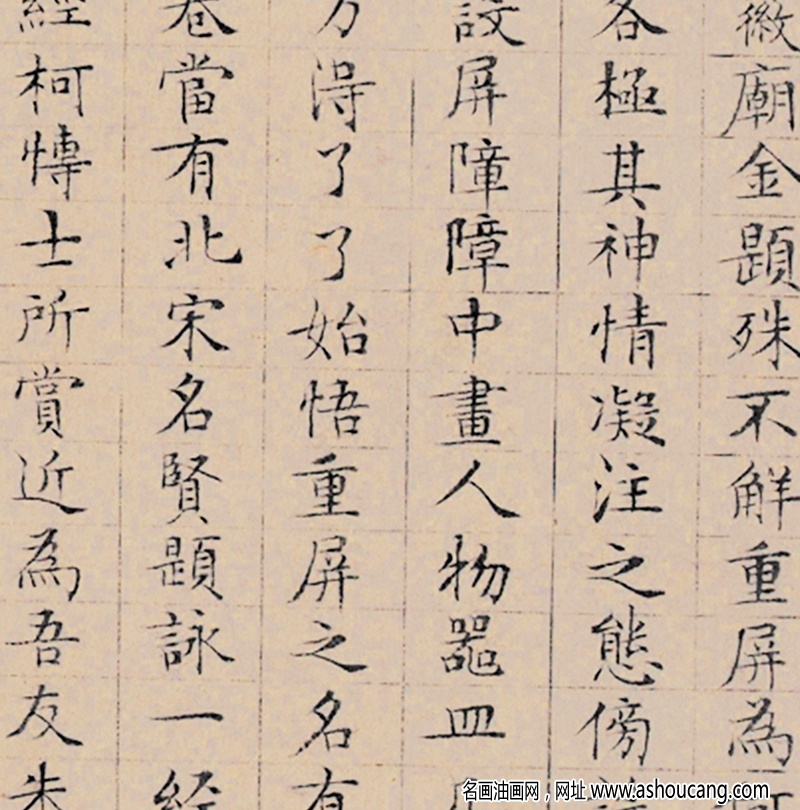 徽廟金題殊不解重屏為
各極其神情凝注之態傍
設屏障障中畫人物器皿
方得了了始悟重屏之名有
卷當有北宋名賢題詠一經
經柯博士所賞近為吾友朱
名画油画网，网址 www.ashoucang.com